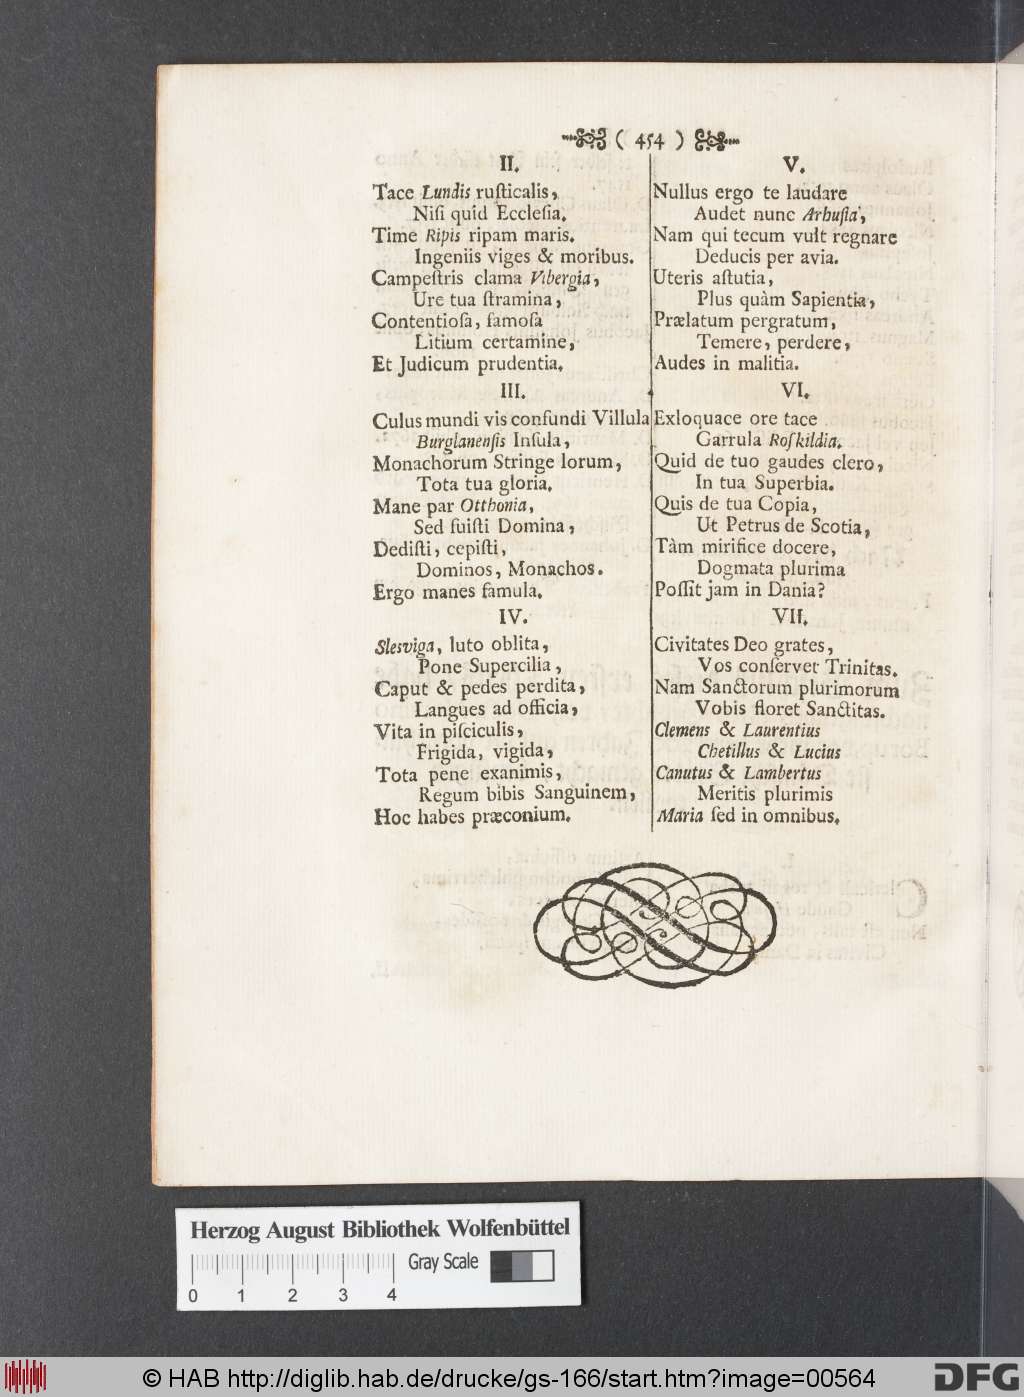 ( 454 )
II.
Tace Lundis ruſticalis,
Niſi quid Eccleſia.
Time Ripis ripam maris.
Ingeniis viges & moribus.
Campeſtris clama Vibergia,
Ure tua ſtramina,
Contentioſa, famoſa
Litium certamine,
Et Judicum prudentia.
III.
Culus mundi vis confundi Villula
Burglanenſis Inſula,
Monachorum Stringe lorum,
Tota tua gloria.
Mane par Otthonia,
Sed fuiſti Domina,
Dediſti, cepiſti,
Dominos, Monachos.
Ergo manes famula.
IV.
Slesviga, luto oblita,
Pone Supercilia,
Caput & pedes perdita,
Langues ad officia,
Vita in piſciculis,
Frigida, vigida,
Tota pene exanimis,
Regum bibis Sanguinem,
Hoc habes præconium.
V.
Nullus ergo te laudare
Audet nunc Arhuſia,
Nam qui tecum vult regnare
Deducis per avia.
Uteris aſtutia,
Plus quàm Sapientia,
Prælatum pergratum,
Temere, perdere,
Audes in malitia.
VI.
Exloquace ore tace
Garrula Roſkildia.
Quid de tuo gaudes clero,
In tua Superbia.
Quis de tua Copia,
Ut Petrus de Scotia,
Tàm mirifice docere,
Dogmata plurima
Poſſit jam in Dania?
VII.
Civitates Deo grates,
Vos conſervet Trinitas.
Nam Sanctorum plurimorum
Vobis floret Sanctitas.
Clemens & Laurentius
Chetillus & Lucius
Canutus & Lambertus
Meritis plurimis
Maria ſed in omnibus.
Herzog August Bibliothek Wolfenbüttel
Gray Scale
0 1 2 3 4
© HAB http://diglib.hab.de/drucke/gs-166/start.htm?image=00564
DFG